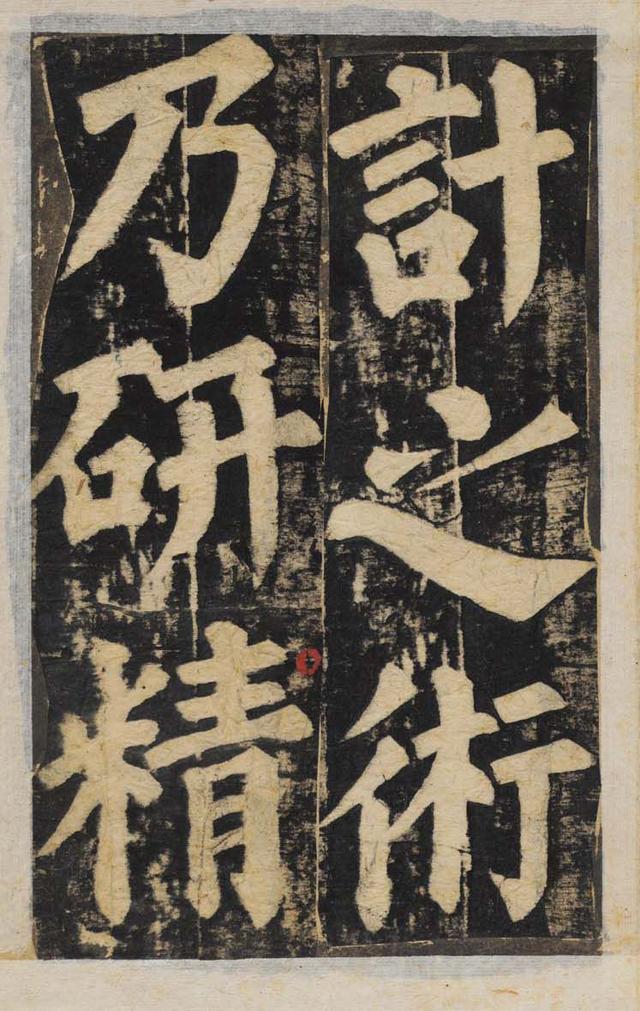 計之術
乃研精